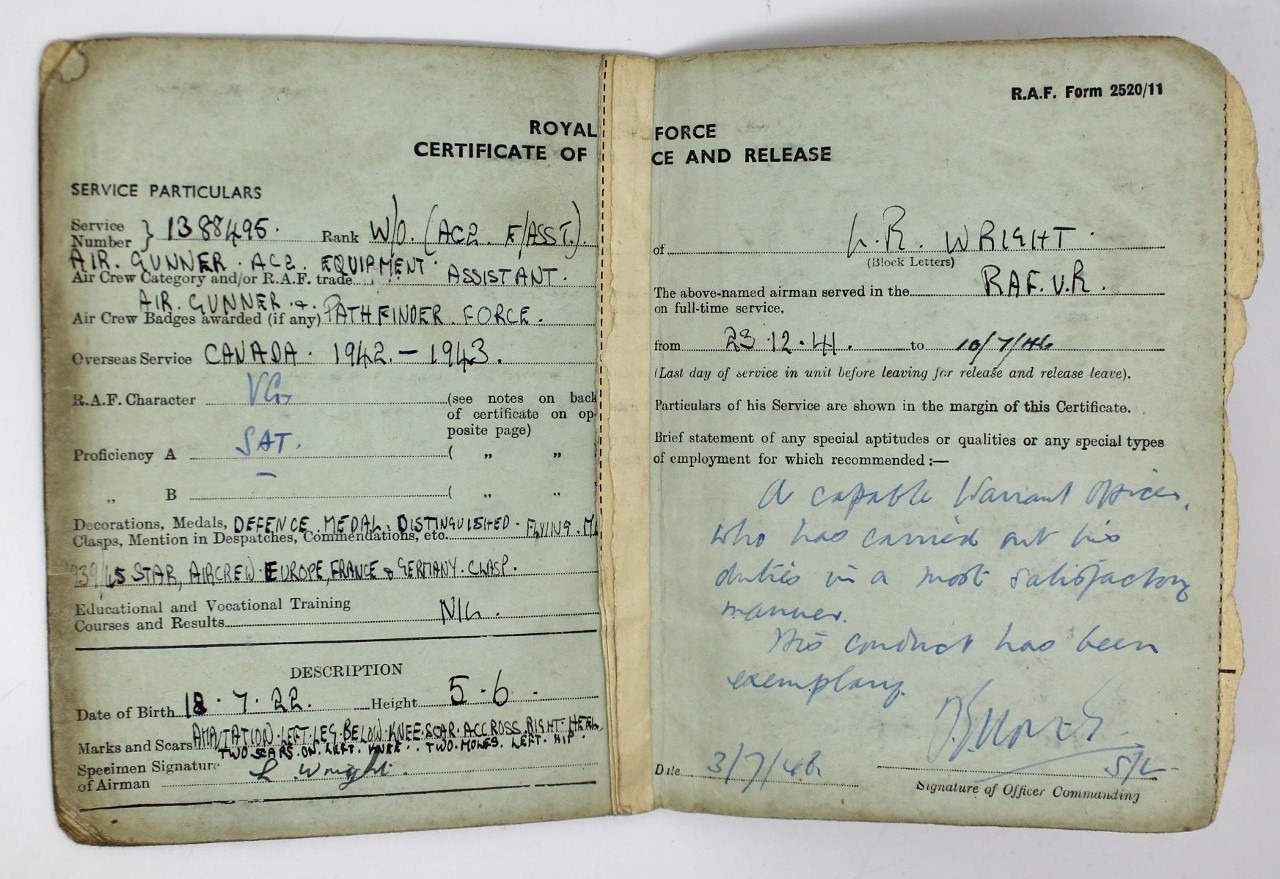 R.A.F. Form 2520/11
ROYAL FORCE
CERTIFICATE OF CE AND RELEASE
SERVICE PARTICULARS
Service Number } 1388495. Rank W/O. (AC2 F/ASST.).
AIR. GUNNER. AC2. EQUIPMENT.
Air Crew Category and/or R.A.F. trade ASSISTANT.
AIR GUNNER &
Air Crew Badges awarded (if any) PATHFINDER FORCE.
Overseas Service CANADA. 1942. – 1943.
R.A.F. Character VG (see notes on back
of certificate on op-
posite page)
Proficiency A SAT. ( „ „
„ B – ( „ „
Decorations, Medals, DEFENCE MEDAL. DISTINGUISHED. FLYING. M
Clasps, Mention in Despatches, Commendations, etc.
39/45 STAR, AIRCREW. EUROPE, FRANCE & GERMANY. CLASP.
Educational and Vocational Training
Courses and Results NIL.
DESCRIPTION
Date of Birth 18. 7. 22. Height 5. 6.
AMPTATION. LEFT. LEG. BELOW. KNEE. SCAR. ACCROSS. RIGHT. HEEL
Marks and Scars TWO. SCARS. ON. LEFT. KNEE. TWO. MOLES. LEFT. HIP.
Specimen Signature
of Airman L Wright.
of L. R. WRIGHT.
(Block Letters)
The above-named airman served in the RAF.V.R.
on full-time service.
from 23.12.41. to 10/7/46
(Last day of service in unit before leaving for release and release leave).
Particulars of his Service are shown in the margin of this Certificate.
Brief statement of any special aptitudes or qualities or any special types
of employment for which recommended :—
A capable Warrant Officer,
who has carried out his
duties in a most satisfactory
manner.
His conduct has been
exemplary.
Date 3/7/46 S/L
Signature of Officer Commanding